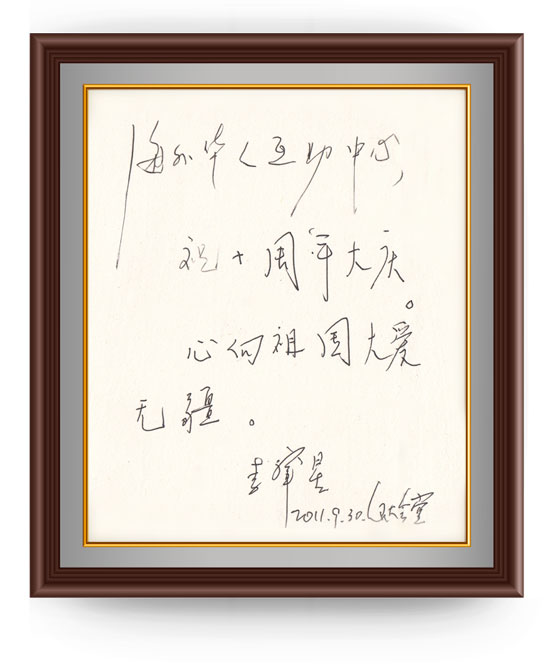 海外华人互助中心,
祝十周年大庆。
心向祖国大爱
无疆。
李肇星
2011.9.30.人民大会堂